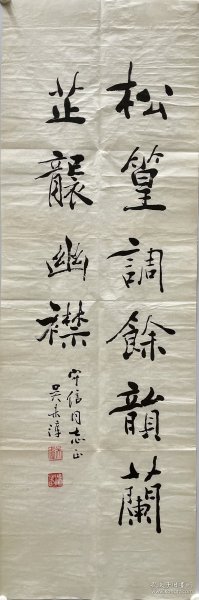 松篁調餘韻蘭
芷襲幽襟
守信同志正
吳未淳